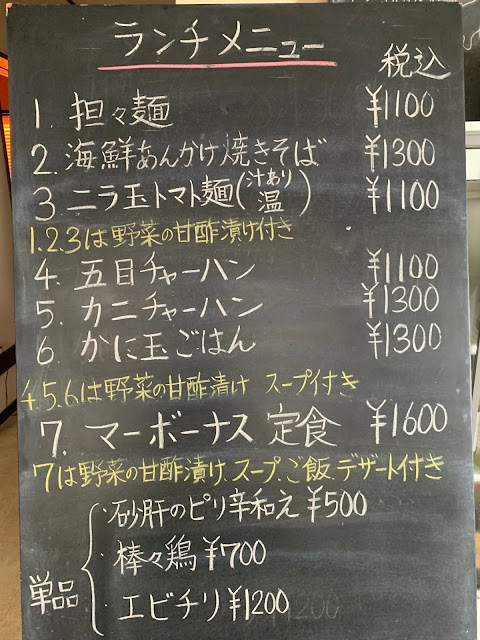 ランチメニュー
税込
1. 担々麺 ¥1100
2. 海鮮あんかけ焼きそば ¥1300
3. ニラ玉トマト麺(汁あり 温) ¥1100
1.2.3は野菜の甘酢漬け付き
4. 五目チャーハン ¥1100
5. カニチャーハン ¥1300
6. かに玉ごはん ¥1300
4.5.6は野菜の甘酢漬け スープ付き
7. マーボーナス定食 ¥1600
7は野菜の甘酢漬け.スープ.ご飯.デザート付き
単品
・砂肝のピリ辛和え ¥500
・棒々鶏 ¥700
・エビチリ ¥1200